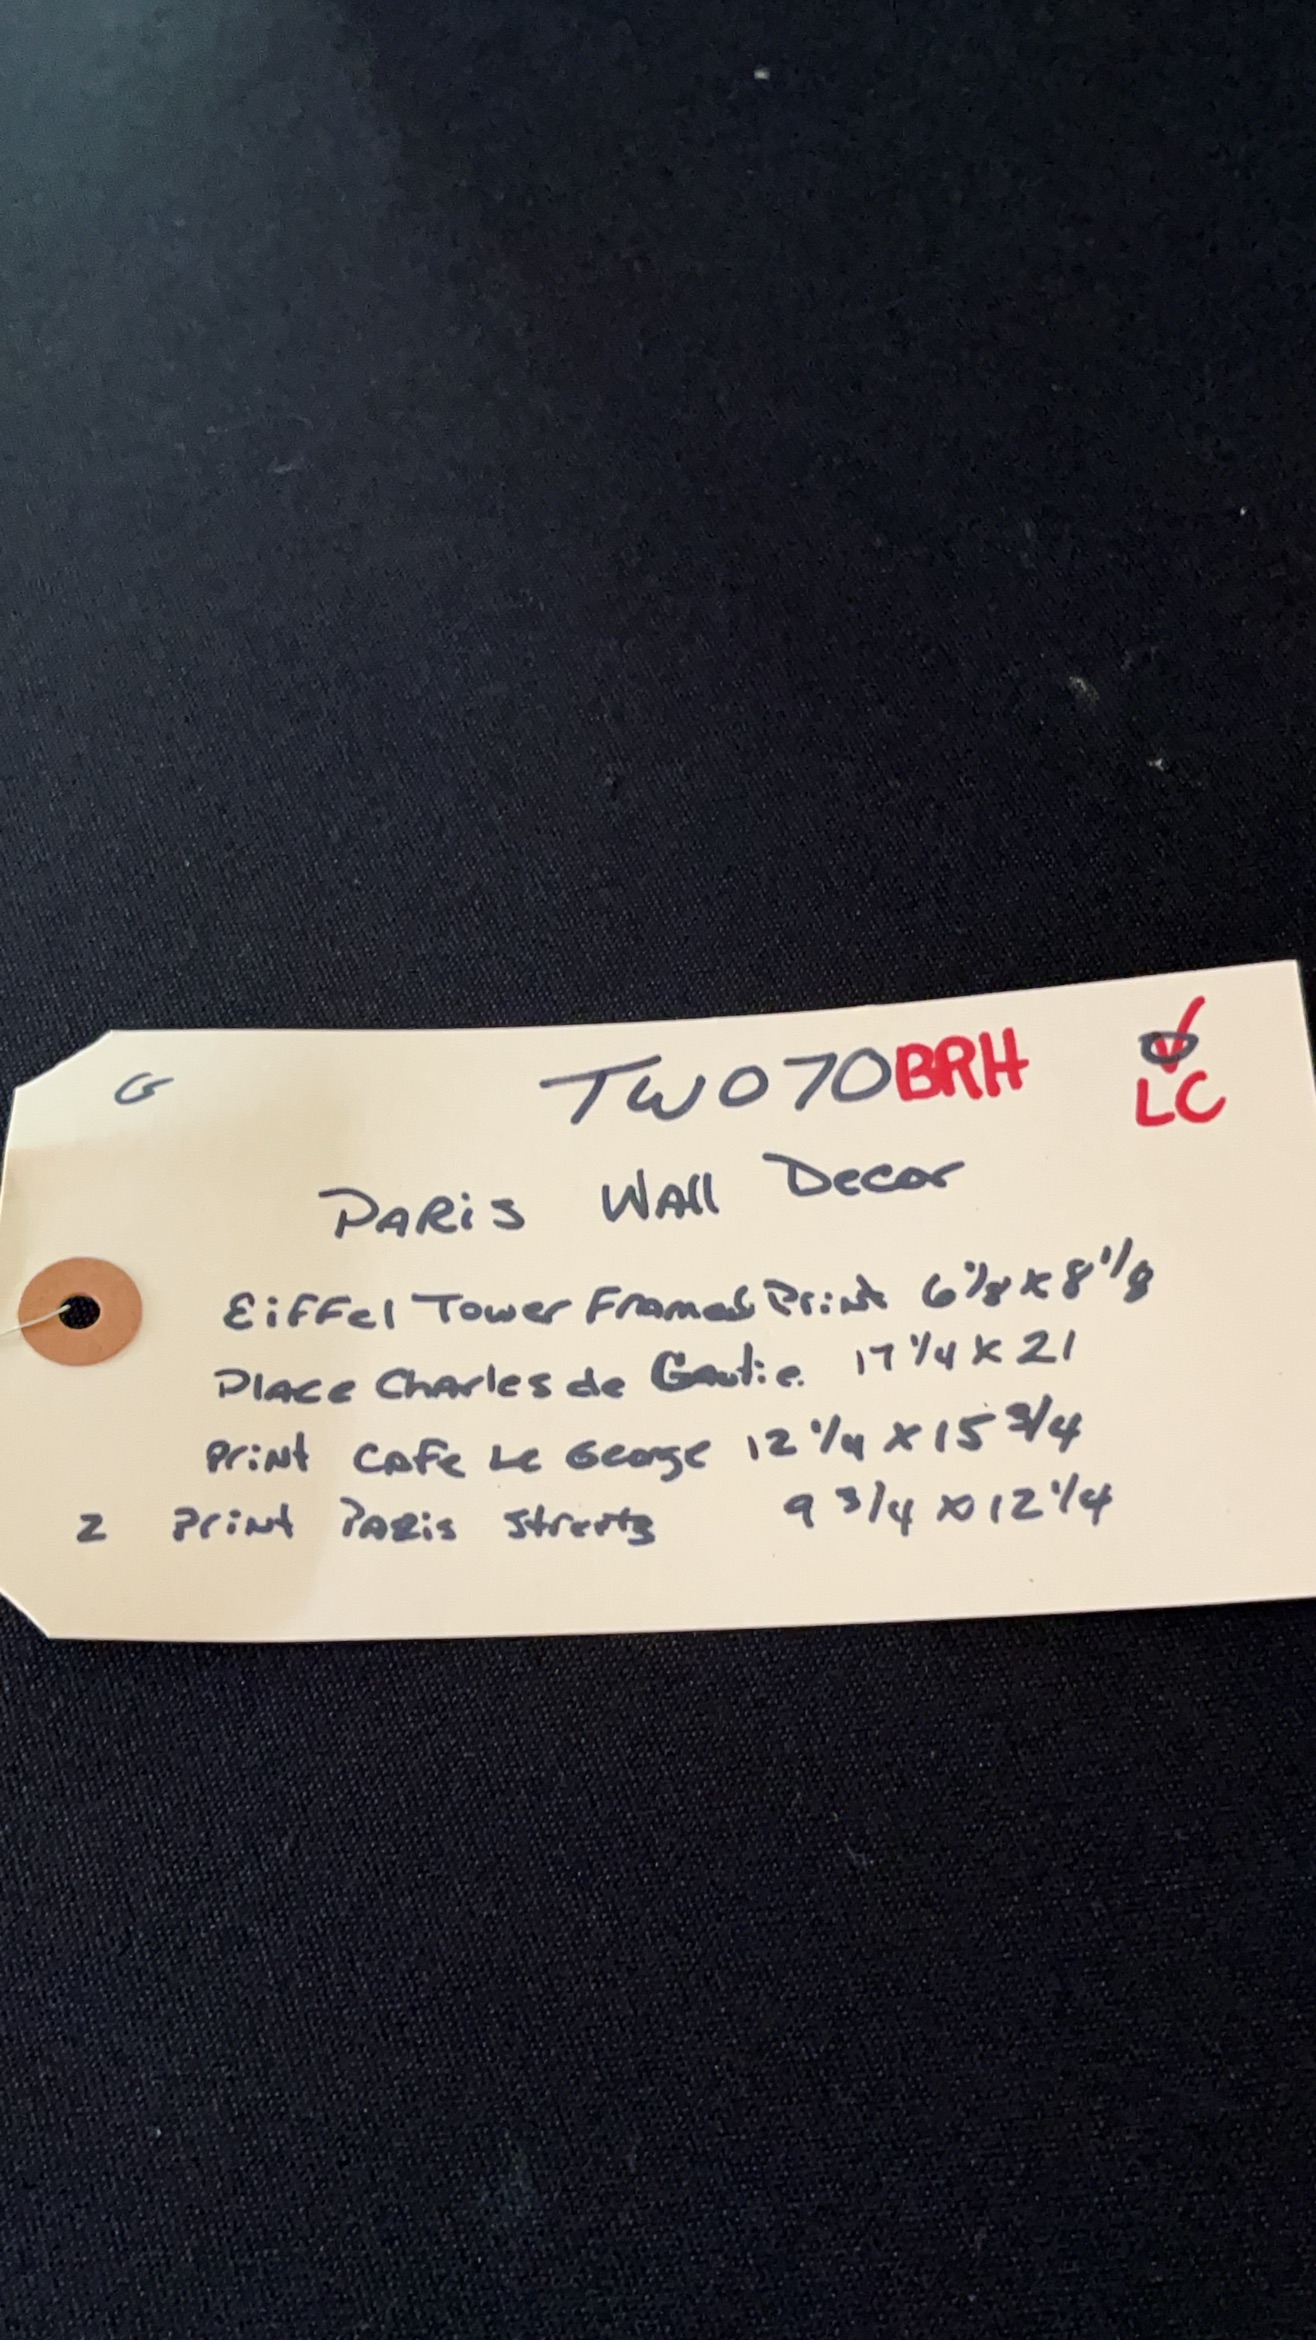 G TW070BRH LC
Paris Wall Decor
Eiffel Tower Framed Print 6 1/8 x 8 1/8
Place Charles de 17 1/4 x 21
Print Cafe Le George 12 1/4 x 15 3/4
2 Print Paris Streets 9 3/4 x 12 1/4